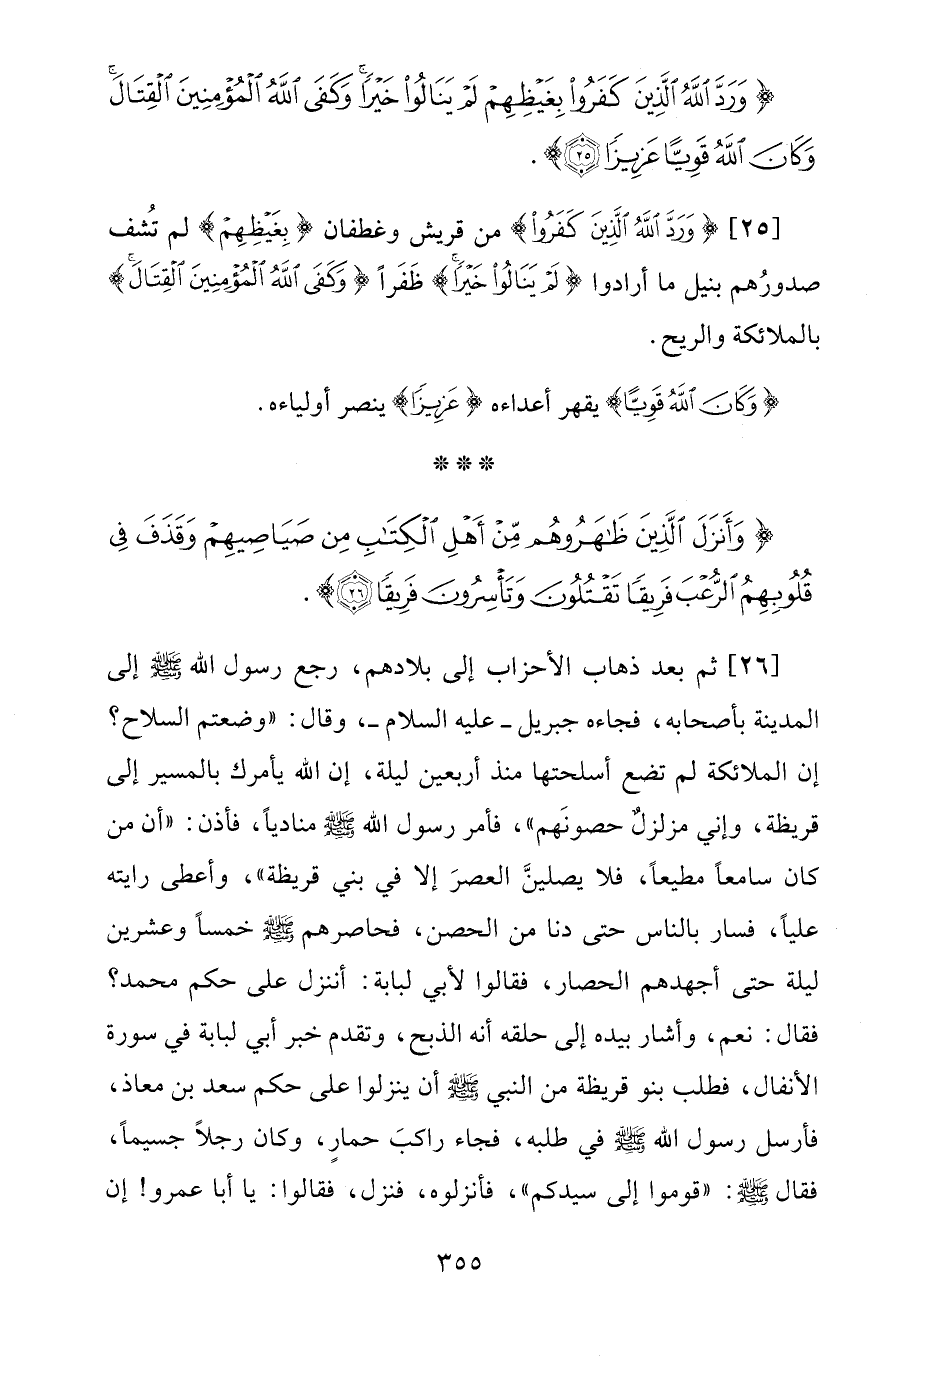 ﴿ وَرَدَّ ٱللَّهُ ٱلَّذِينَ كَفَرُواْ بِغَيْظِهِمْ لَمْ يَنَالُواْ خَيْرًاۚ وَكَفَى ٱللَّهُ ٱلْمُؤْمِنِينَ ٱلْقِتَالَۚ
وَكَانَ ٱللَّهُ قَوِيًّا عَزِيزًا ۝٢٥ ﴾ .
[٢٥] ﴿ وَرَدَّ ٱللَّهُ ٱلَّذِينَ كَفَرُواْ﴾ من قريش وغطفان ﴿ بِغَيْظِهِمْ﴾ لم تُشف
صدورُهم بنيل ما أرادوا ﴿ لَمْ يَنَالُواْ خَيْرًاۚ﴾ ظَفَراً ﴿ وَكَفَى ٱللَّهُ ٱلْمُؤْمِنِينَ ٱلْقِتَالَۚ﴾
بالملائكة والريح .
﴿ وَكَانَ ٱللَّهُ قَوِيًّا﴾ يقهر أعداءه ﴿ عَزِيزًا﴾ ينصر أولياءه .
* * *
﴿ وَأَنزَلَ ٱلَّذِينَ ظَٰهَرُوهُم مِّنْ أَهْلِ ٱلْكِتَٰبِ مِن صَيَاصِيهِمْ وَقَذَفَ فِى
قُلُوبِهِمُ ٱلرُّعْبَ فَرِيقًا تَقْتُلُونَ وَتَأْسِرُونَ فَرِيقًا ۝٢٦ ﴾ .
[٢٦] ثم بعد ذهاب الأحزاب إلى بلادهم، رجع رسول الله ﷺ إلى
المدينة بأصحابه، فجاءه جبريل ـ عليه السلام ـ، وقال: «وضعتم السلاح؟
إن الملائكة لم تضع أسلحتها منذ أربعين ليلة، إن الله يأمرك بالمسير إلى
قريظة، وإني مزلزلٌ حصونَهم»، فأمر رسول الله ﷺ منادياً، فأذن: «أن من
كان سامعاً مطيعاً، فلا يصلينَّ العصرَ إلا في بني قريظة»، وأعطى رايته
علياً، فسار بالناس حتى دنا من الحصن، فحاصرهم ﷺ خمساً وعشرين
ليلة حتى أجهدهم الحصار، فقالوا لأبي لبابة: أننزل على حكم محمد؟
فقال: نعم، وأشار بيده إلى حلقه أنه الذبح، وتقدم خبر أبي لبابة في سورة
الأنفال، فطلب بنو قريظة من النبي ﷺ أن ينزلوا على حكم سعد بن معاذ،
فأرسل رسول الله ﷺ في طلبه، فجاء راكبَ حمارٍ، وكان رجلاً جسيماً،
فقال ﷺ: «قوموا إلى سيدكم»، فأنزلوه، فنزل، فقالوا: يا أبا عمرو! إن
٣٥٥